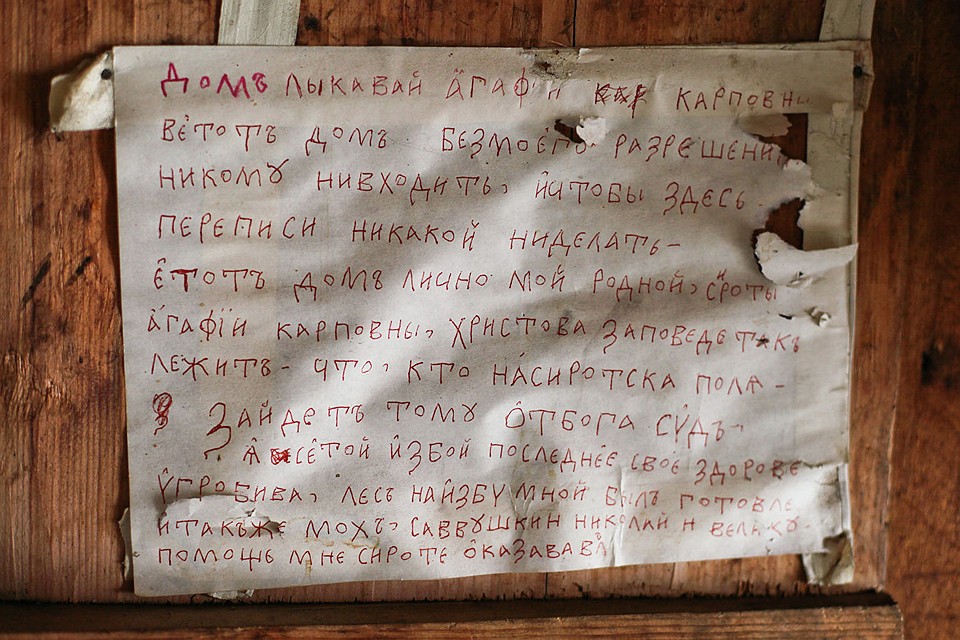 Домъ лыкавай а́гафïи карповны
вє́тотъ домъ безмоєго разрєшени
никомꙋ нивходить, и҆чтобы здєсь
пєрєписи никакой ниделать-
є҆тотъ домъ лично мой родной, сыроты
а҆гафїи карповны, христова заповеде такъ
лежитъ- что, кто на́сиротска поля-
Зайдетъ томꙋ о҆тбога сꙋдъ,
Я сє҆той и҆збой последнее своє здорове
ѹгробива, лесъ наизбꙋ мной былъ готовле
итакъже мохъ, саввꙋшкин николай н велакꙋ-
помощь мне сироте о҆казавав